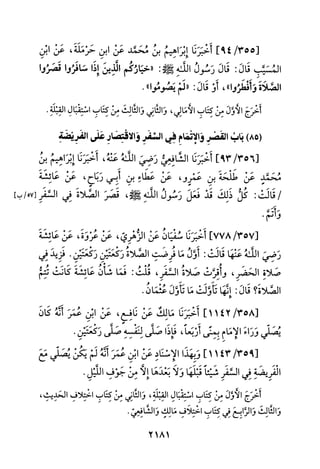 [٩٤/٣٥٥] أَخْبَرَنَا إِبْرَاهِيمُ بنُ مُحَمَّد عن ابنِ حَرْمَلَةَ، عَنْ ابْنِ
المُسَيَّبِ قَالَ: قَالَ رَسُولُ اللَّـهِ ﷺ: «خِيَارُكُم الَّذِينَ إِذَا سَافَرُوا قَصَرُوا
الصَّلاَةَ وَأَفْطَرُوا»، أَوْ قَالَ: «لَمْ يَصُومُوا».
أَخرَجَ الأوَّلَ مِنْ كِتَابِ الأَمَالِي، وَالثَّانِي وَالثَّالِثَ مِنْ كِتَابِ اسْتِقْبَالِ القِبْلَةِ.
(٨٥) بَابُ القَصْرِ وَالإِتْمَامِ فِي السَّفَرِ وَالاقْتِصَارِ عَلَى الفَرِيْضَةِ
[٩٣/٣٥٦] أَخْبَرَنَا الشَّافِعِيُّ رَضِيَ اللَّهُ عَنْهُ، أَخْبَرَنَا إِبْرَاهِيمُ بنُ
مُحَمَّدٍ عَنْ طَلْحَةَ بنِ عَمْرٍو، عَنْ عَطَاءِ بنِ أَبِي رَبَاحٍ، عَنْ عَائِشَةَ
/ قَالَتْ: كُلُّ ذَلِكَ قَدْ فَعَلَ رَسُولُ اللَّهِ ﷺ، قَصَرَ الصَّلاةَ فِي السَّفَرِ [٥٧/ب]
وَأَتَمَّ.
[٧٧٨/٣٥٧] أَخْبَرَنَا سُفْيَانُ عَنِ الزُّهْرِيِّ، عَنْ عُرْوَةَ، عَنْ عَائِشَةَ
رَضِيَ اللَّهُ عَنْهَا قَالَتْ: أَوَّلُ مَا فُرِضَتِ الصَّلاةُ رَكْعَتَيْنِ رَكْعَتَيْنِ. فَزِيدَ فِي
صَلاةِ الحَضَرِ، وأُقِرَّتْ صَلاةُ السَّفَرِ، قُلْتُ: فَمَا شَأْنُ عَائِشَةَ كَانَتْ تُتِمُّ
الصَّلاةَ؟ قَالَ: إِنَّهَا تَأَوَّلَتْ مَا تَأَوَّلَ عُثْمَانُ.
[١١٤٢/٣٥٨] أَخْبَرَنَا مَالِكٌ عَنْ نَافِعٍ، عَنْ ابْنِ عُمَرَ أَنَّهُ كَانَ
يُصَلِّي وَرَاءَ الإِمَامِ بِمِنًى أَرْبَعاً، فَإِذَا صَلَّى لِنَفْسِهِ صَلَّى رَكْعَتَيْنِ.
[١١٤٣/٣٥٩] وَبِهَذَا الإِسْنَادِ عَنْ ابْنِ عُمَرَ أَنَّهُ لَمْ يَكُنْ يُصَلِّي مَعَ
الْفَرِيضَةِ فِي السَّفَرِ شَيْئاً قَبْلَهَا وَلاَ بَعْدَهَا إِلاَّ مِنْ جَوْفِ اللَّيْلِ.
أَخْرَجَ الأَوَّلَ مِنْ كِتَابِ اسْتِقْبَالِ القِبْلَةِ، وَالثَّانِي مِنْ كِتَابِ اخْتِلافِ الحَدِيثِ،
وَالثَّالِثَ وَالرَّابِعَ فِي كِتَابِ اخْتِلافِ مَالِكٍ وَالشَّافِعِيِّ.
٢١٨١